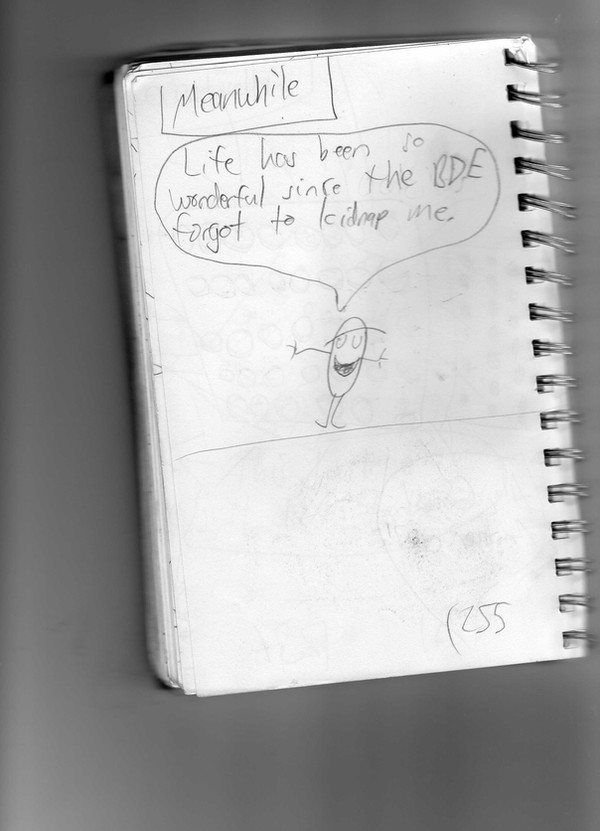 Meanwhile
Life has been so
wonderful since the BDE
forgot to kidnap me.
(255